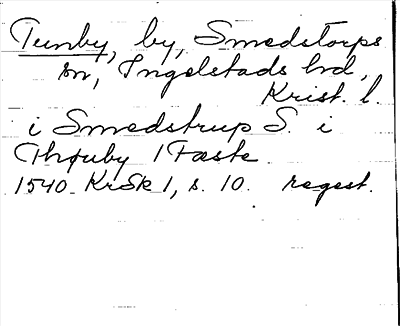 Tunby, by, Smedstorps
sn, Ingelstads hd,
Krist. l.
i Smedstrup S. i
Thruby 1 Fæste.
1540 KrSk 1, s. 10. regest.